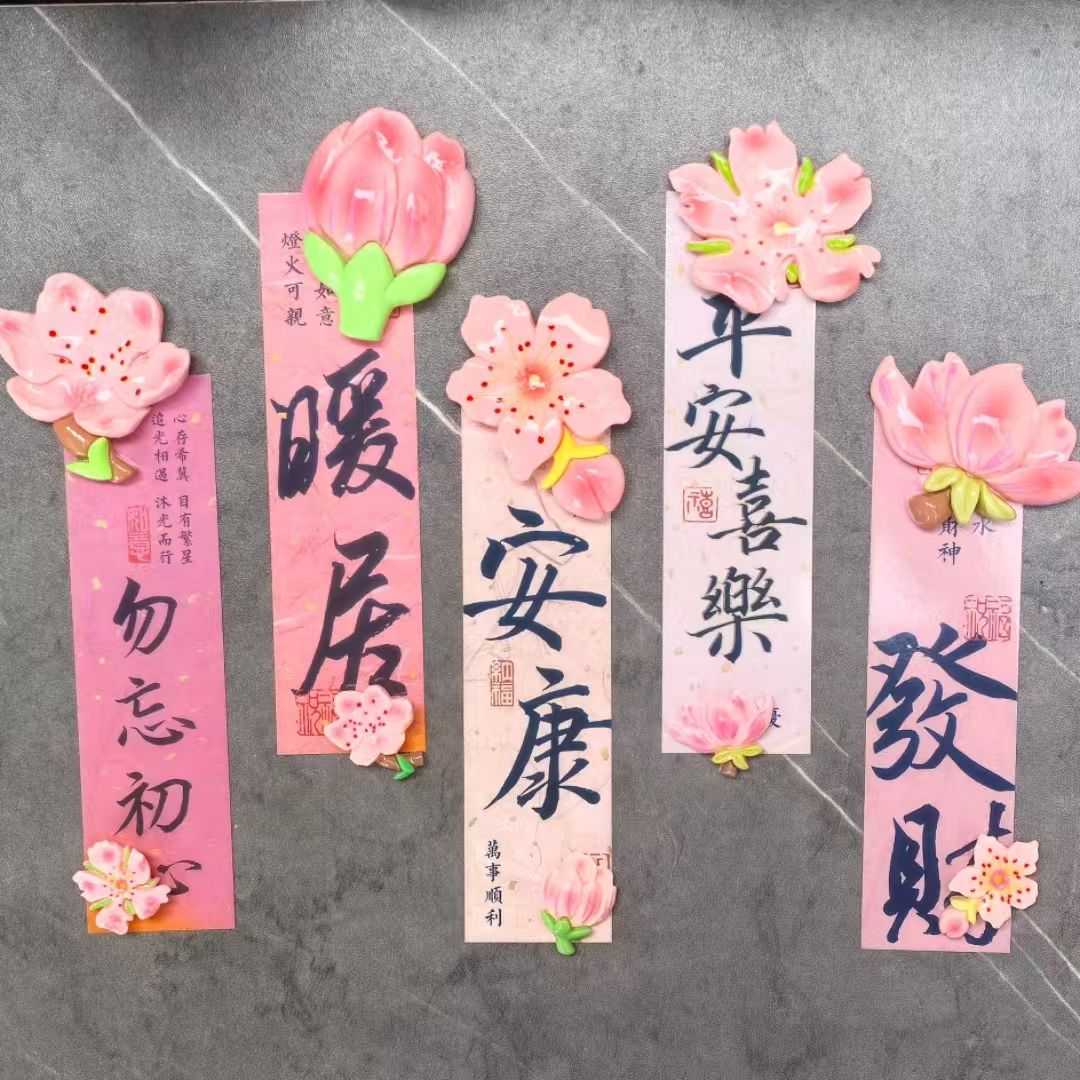 心存希冀 目有繁星
追光相遇 沐光而行
如意
勿忘初心
如意
燈火可親
暖居
安康
納福
萬事順利
平安喜樂
禧
財神
發財